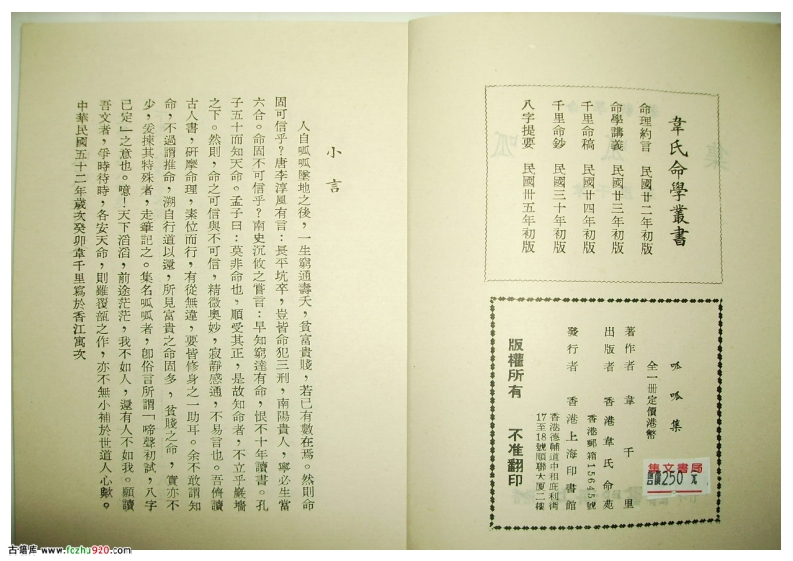 韋氏命學叢書
命理約言　民國廿二年初版
命學講義　民國廿三年初版
千里命稿　民國廿四年初版
千里命鈔　民國三十年初版
八字提要　民國卅五年初版
呱呱集
全一冊定價港幣
集文書局
售價250元
著作者　韋千里
出版者　香港韋氏命苑
香港郵箱15645號
發行者　香港上海印書館
香港德輔道中租庇利街
17至18號順聯大厦二樓
版權所有　不准翻印
小言
人自呱呱墜地之後，一生窮通壽夭，貧富貴賤，若已有數在焉。然則命
固可信乎？唐李淳風有言：長平坑卒，豈皆命犯三刑，南陽貴人，寧必生當
六合。命固不可信乎？南史沉攸之嘗言：早知窮達有命，恨不十年讀書。孔
子五十而知天命。孟子曰：莫非命也，順受其正，是故知命者，不立乎巖墻
之下。然則，命之可信與不可信，精微奧妙，寂靜感通，不易言也。吾儕讀
古人書，研摩命理，素位而行，有從無違，要皆修身之一助耳。余不敢謂知
命，不過謂推命，溯自行道以還，所見富貴之命固多，貧賤之命，實亦不
少，妥揀其特殊者，走筆記之。集名呱呱者，卽俗言所謂「啼聲初試，八字
已定」之意也。噫！天下滔滔，前途茫茫，我不如人，還有人不如我。願讀
吾文者，爭時待時，各安天命，則雖覆瓿之作，亦不無小補於世道人心歟。
中華民國五十二年歲次癸卯韋千里寫於香江寓次
古籍库 www.fczhu920.com